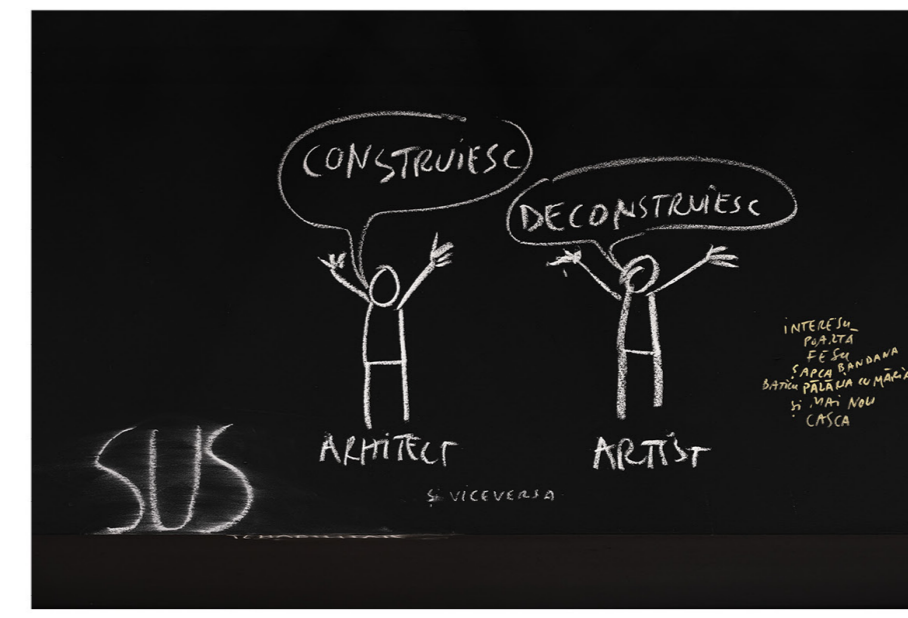 CONSTRUIESC
DECONSTRUIESC
ARHITECT
ARTIST
Ș VICEVERSA
SUS
INTERESU
POARTA
FESU
ȘAPCA BANDANA
BATICU PĂLĂRIA CU MĂRIA
ȘI MAI NOU
CASCA